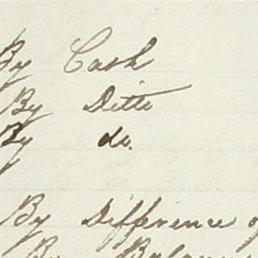 By Cash
By Ditto
By do.
By Difference of
By Balance